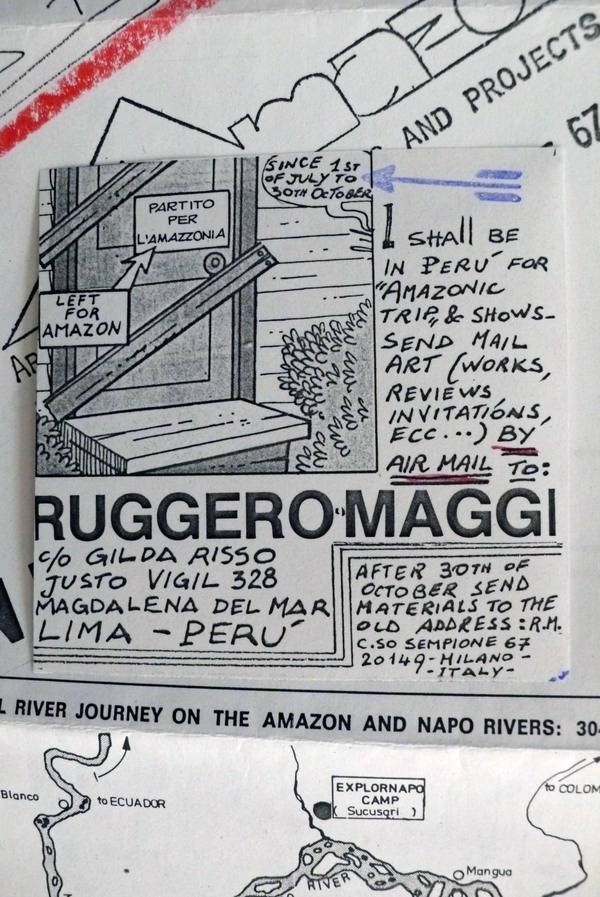 AMAZO
AND PROJECTS
67
AR
SINCE 1ST
OF JULY TO
30TH OCTOBER
PARTITO
PER
L'AMAZZONIA
LEFT
FOR
AMAZON
I SHALL BE
IN PERU' FOR
"AMAZONIC
TRIP" & SHOWS_
SEND MAIL
ART (WORKS,
REVIEWS,
INVITATIONS,
ECC...) BY
AIR MAIL TO:
RUGGERO MAGGI
C/O GILDA RISSO
JUSTO VIGIL 328
MAGDALENA DEL MAR
LIMA - PERU'
AFTER 30TH OF
OCTOBER SEND
MATERIALS TO THE
OLD ADDRESS: R.M.
C.SO SEMPIONE 67
20149-MILANO-
-ITALY-
L RIVER JOURNEY ON THE AMAZON AND NAPO RIVERS: 30
Blanco
to ECUADOR
EXPLORNAPO
CAMP
(Sucusari)
to COLOM
Mangua
RIVER